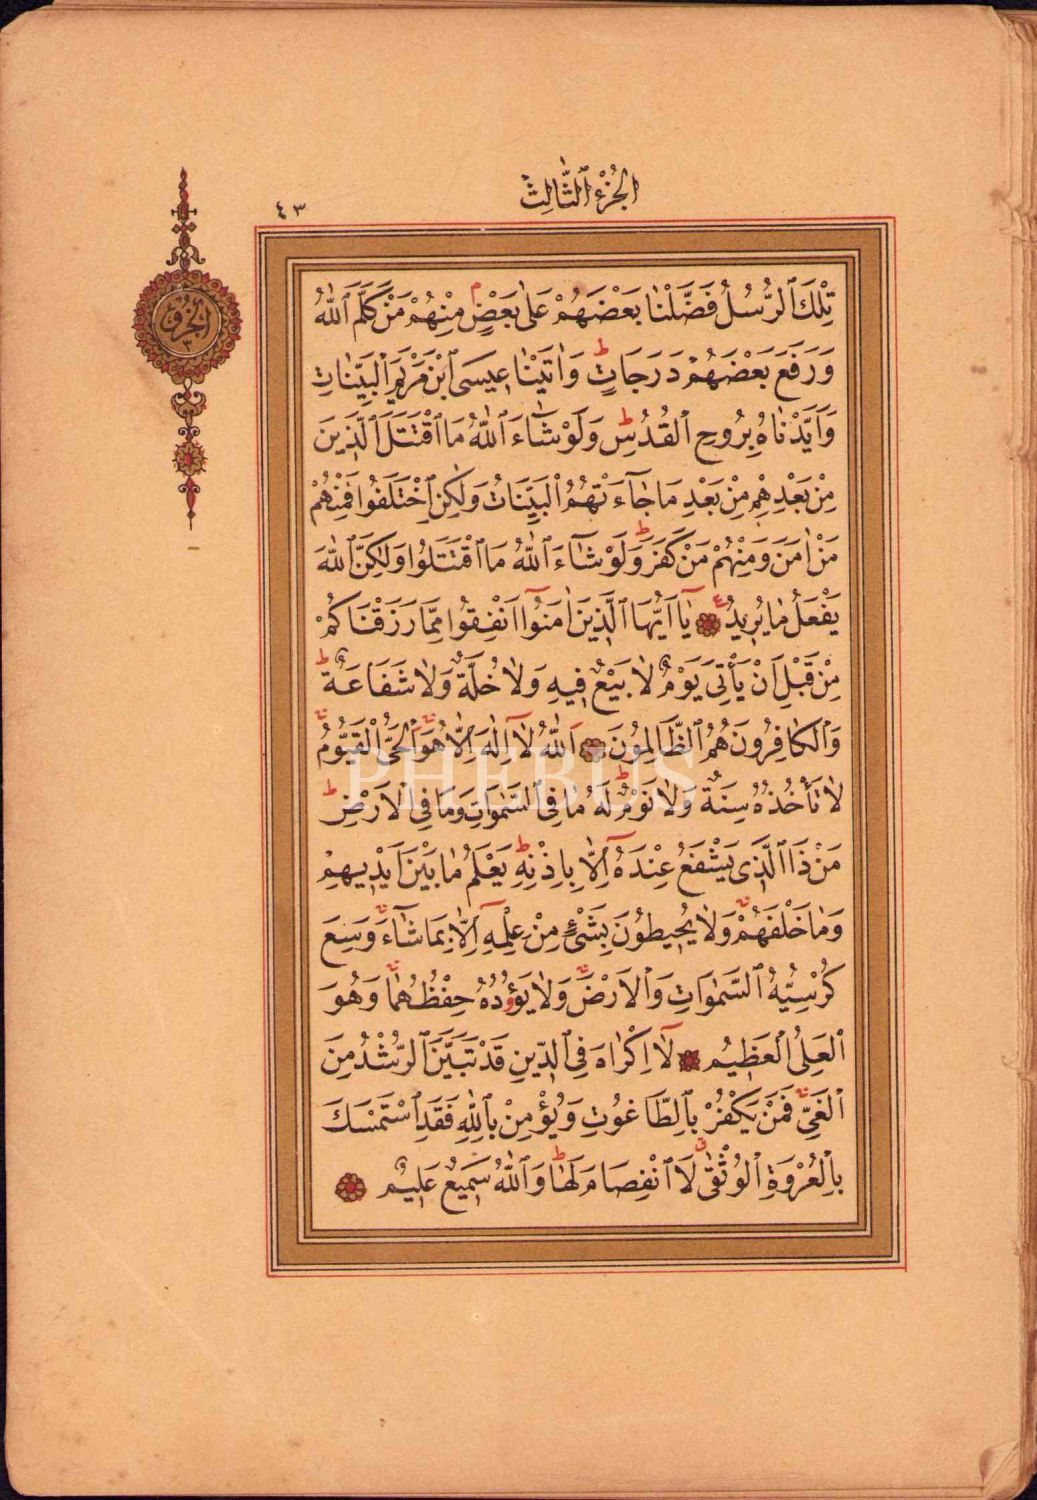 الْجُزْءُ الثَّالِثُ
٤٣
الجزؤ
٣
تِلْكَ الرُّسُلُ فَضَّلْنَا بَعْضَهُمْ عَلٰى بَعْضٍ م مِنْهُمْ مَنْ كَلَّمَ اللّٰهُ
وَرَفَعَ بَعْضَهُمْ دَرَجَاتٍ ط وَاٰتَيْنَا عِيسَى ابْنَ مَرْيَمَ الْبَيِّنَاتِ
وَاَيَّدْنَاهُ بِرُوحِ الْقُدُسِ ط وَلَوْ شَٓاءَ اللّٰهُ مَا اقْتَتَلَ الَّذِينَ
مِنْ بَعْدِهِمْ مِنْ بَعْدِ مَا جَٓاءَتْهُمُ الْبَيِّنَاتُ وَلٰكِنِ اخْتَلَفُوا فَمِنْهُمْ
مَنْ اٰمَنَ وَمِنْهُمْ مَنْ كَفَرَ ط وَلَوْ شَٓاءَ اللّٰهُ مَا اقْتَتَلُوا وَلٰكِنَّ اللّٰهَ
يَفْعَلُ مَا يُرِيدُ ع يَٓا اَيُّهَا الَّذِينَ اٰمَنُٓوا اَنْفِقُوا مِمَّا رَزَقْنَاكُمْ
مِنْ قَبْلِ اَنْ يَأْتِىَ يَوْمٌ لَا بَيْعٌ فِيهِ وَلَا خُلَّةٌ وَلَا شَفَاعَةٌ ط
وَالْكَافِرُونَ هُمُ الظَّالِمُونَ اَللّٰهُ لَٓا اِلٰهَ اِلَّا هُوَ اَلْحَىُّ الْقَيُّومُ
لَا تَأْخُذُهُ سِنَةٌ وَلَا نَوْمٌ ط لَهُ مَا فِى السَّمٰوَاتِ وَمَا فِى الْاَرْضِ ط
مَنْ ذَا الَّذِى يَشْفَعُ عِنْدَهُٓ اِلَّا بِاِذْنِهِ ط يَعْلَمُ مَا بَيْنَ اَيْدِيهِمْ
وَمَا خَلْفَهُمْ وَلَا يُحِيطُونَ بِشَىْءٍ مِنْ عِلْمِهِٓ اِلَّا بِمَا شَٓاءَ وَسِعَ
كُرْسِيُّهُ السَّمٰوَاتِ وَالْاَرْضَ وَلَا يَؤُدُهُ حِفْظُهُمَا وَهُوَ
الْعَلِىُّ الْعَظِيمُ لَٓا اِكْرَاهَ فِى الدِّينِ قَدْ تَبَيَّنَ الرُّشْدُ مِنَ
الْغَىِّ فَمَنْ يَكْفُرْ بِالطَّاغُوتِ وَيُؤْمِنْ بِاللّٰهِ فَقَدِ اسْتَمْسَكَ
بِالْعُرْوَةِ الْوُثْقٰى ق لَا انْفِصَامَ لَهَا ط وَاللّٰهُ سَمِيعٌ عَلِيمٌ
PHEBUS